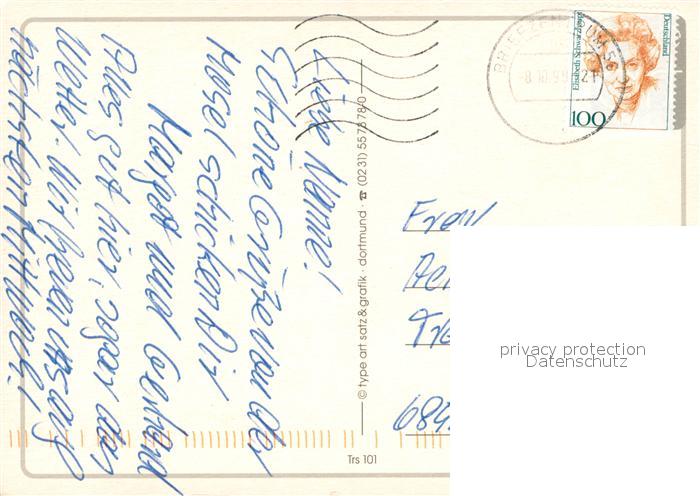 Liebe Nanne!
Schöne Grüße von der
Mosel schicken Dir
Margot und Gerhard
Alles gut hier, sogar das
Wetter. Wir sehen uns am
nächsten Mittwoch!
© type art satz & grafik · dortmund · ☎ (0231) 557878-0
Trs 101
BRIEFZENTRUM 5
-8.10.9 -21
Deutschland
Elisabeth Schwarzhaupt
100
Frau
689
privacy protection
Datenschutz